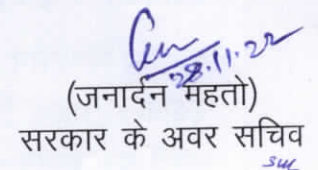 28.11.22
(जनार्दन महतो)
सरकार के अवर सचिव